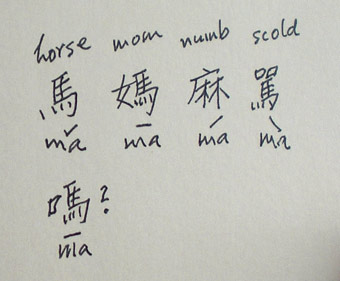 horse mom numb scold
馬 媽 麻 罵
mǎ mā má mà
嗎?
mā